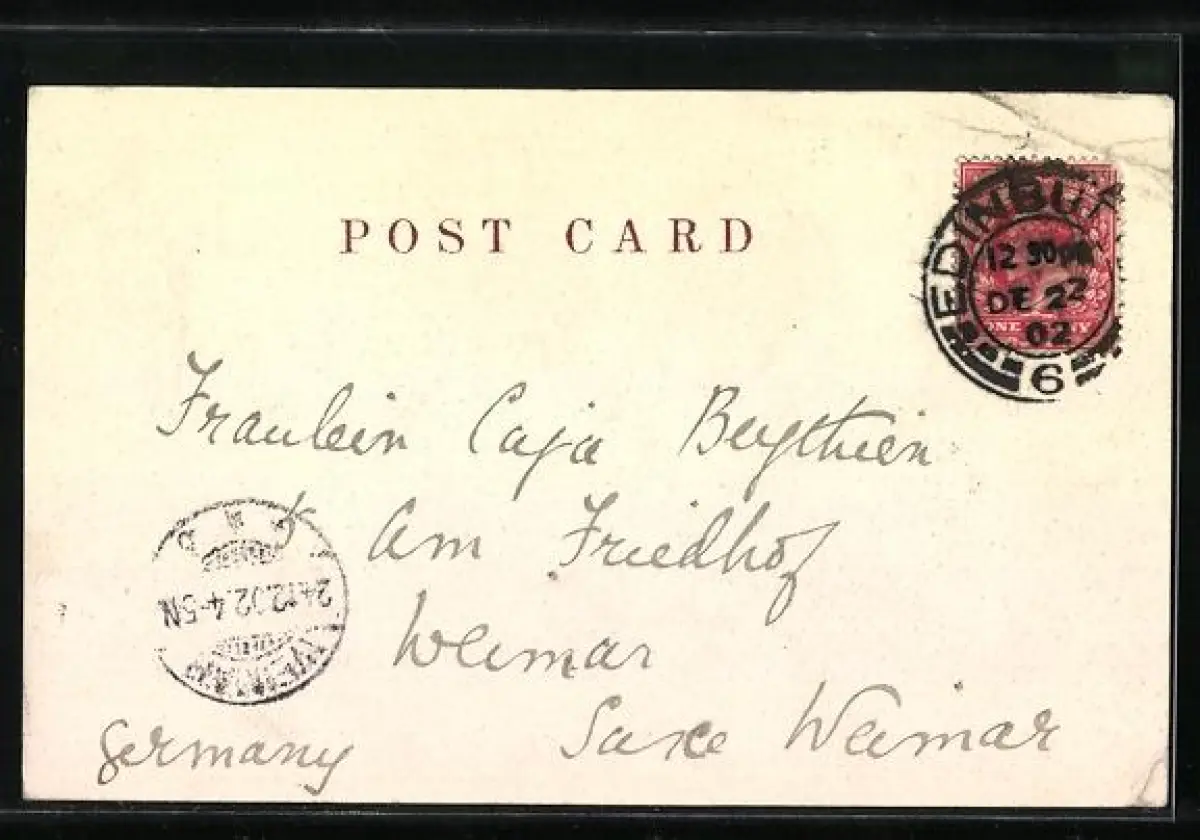 POST CARD
EDINBU
12 30PM
DE 22
02
6
ONE
Fraulein Caja Beythien
Am Friedhof
Weimar
Saxe Weimar
Germany
24.12.02.4-5N
WEIMAR